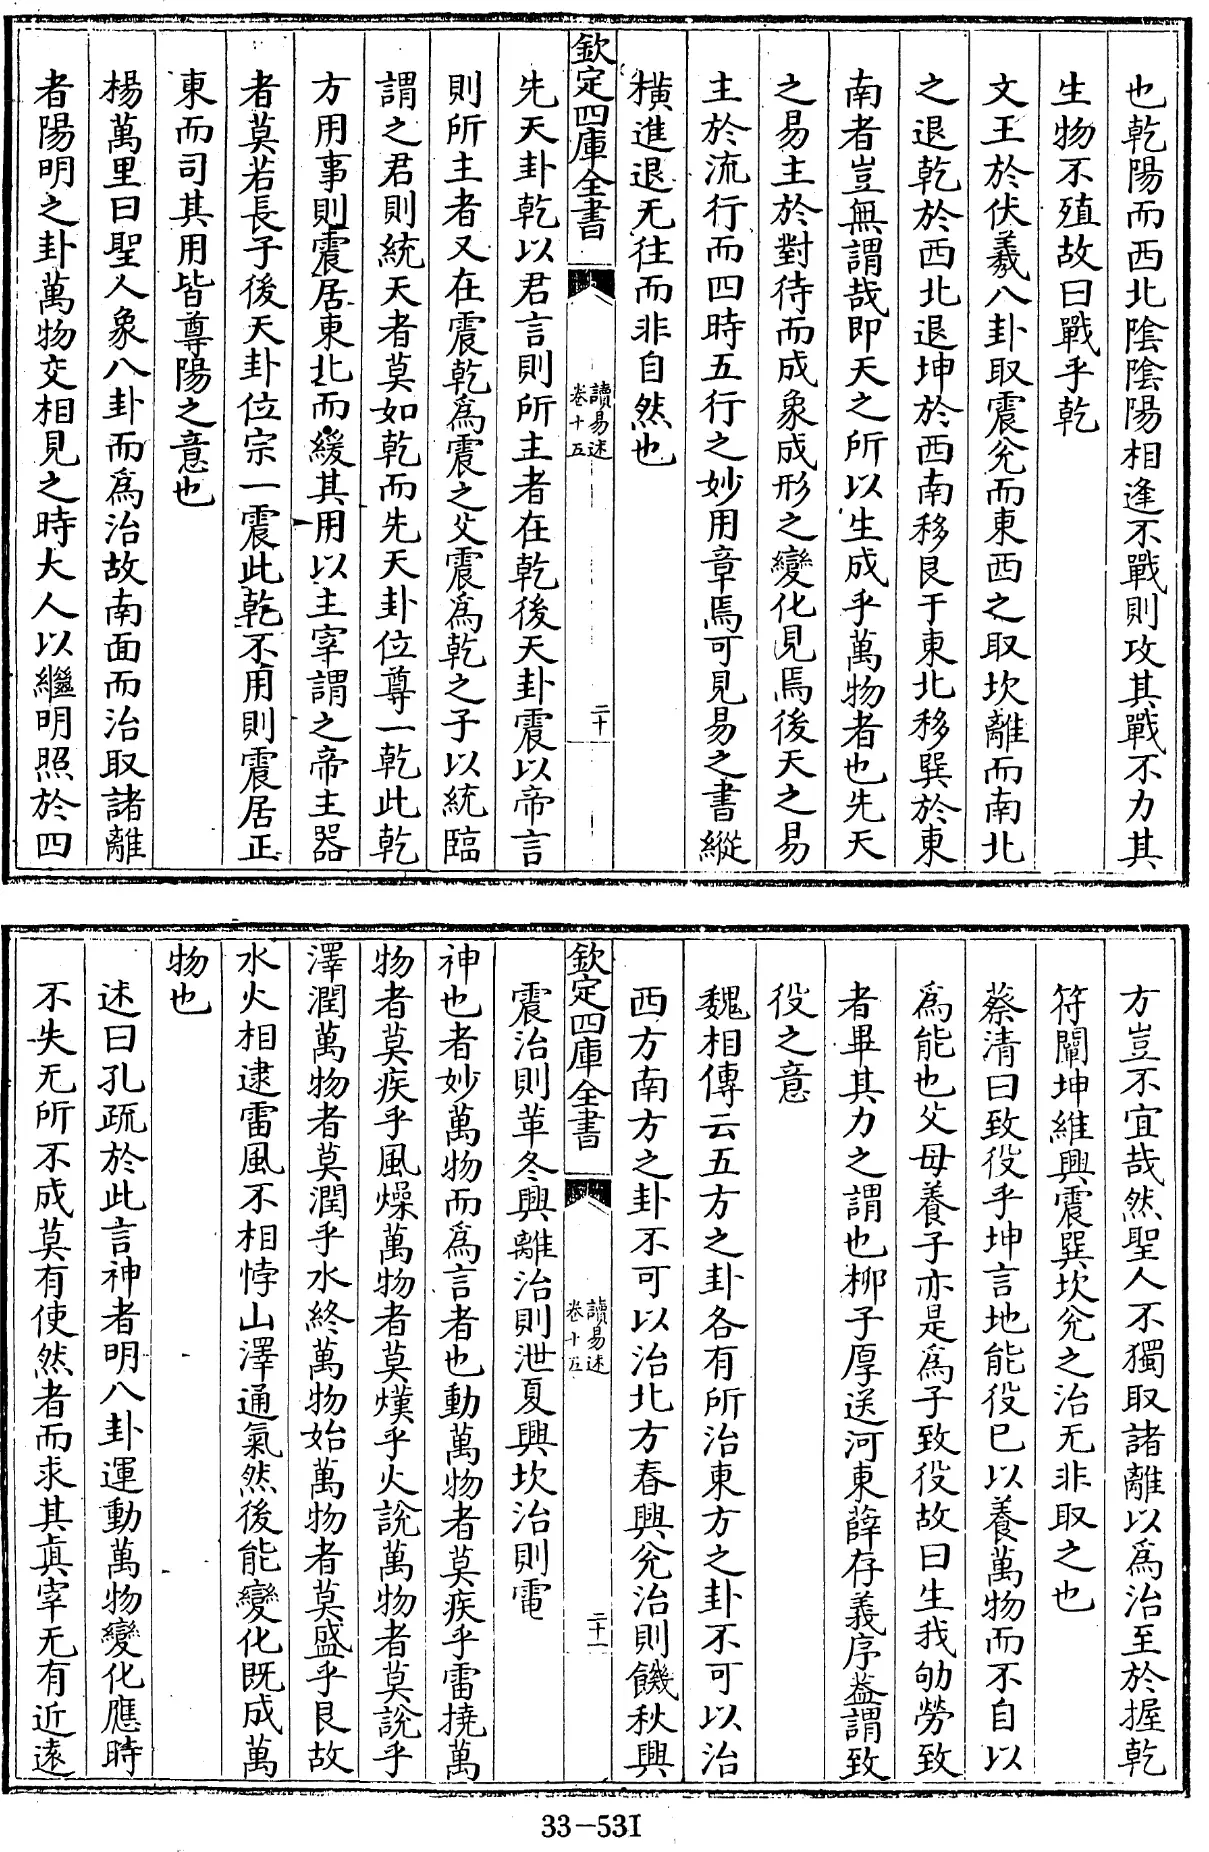 也乾陽而西北陰陰陽相逢不戰則攻其戰不力其
生物不殖故曰戰乎乾
文王於伏羲八卦取震兊而東西之取坎離而南北
之退乾於西北退坤於西南移艮于東北移巽於東
南者豈無謂哉即天之所以生成乎萬物者也先天
之易主於對待而成象成形之變化見焉後天之易
主於流行而四時五行之妙用章焉可見易之書縱
橫進退无往而非自然也
欽定四庫全書
讀易述
卷十五
二十
先天卦乾以君言則所主者在乾後天卦震以帝言
則所主者又在震乾爲震之父震爲乾之子以統臨
謂之君則統天者莫如乾而先天卦位尊一乾此乾
方用事則震居東北而緩其用以主宰謂之帝主器
者莫若長子後天卦位宗一震此乾不用則震居正
東而司其用皆尊陽之意也
楊萬里曰聖人象八卦而爲治故南面而治取諸離
者陽明之卦萬物交相見之時大人以繼明照於四
方豈不宜哉然聖人不獨取諸離以爲治至於握乾
符闡坤維興震巽坎兊之治无非取之也
蔡清曰致役乎坤言地能役已以養萬物而不自以
爲能也父母養子亦是爲子致役故曰生我劬勞致
者畢其力之謂也柳子厚送河東薛存義序葢謂致
役之意
魏相傳云五方之卦各有所治東方之卦不可以治
西方南方之卦不可以治北方春興兊治則饑秋興
欽定四庫全書
讀易述
卷十五
二十一
震治則華冬興離治則泄夏興坎治則雹
神也者妙萬物而爲言者也動萬物者莫疾乎雷撓萬
物者莫疾乎風燥萬物者莫熯乎火說萬物者莫說乎
澤潤萬物者莫潤乎水終萬物始萬物者莫盛乎艮故
水火相逮雷風不相悖山澤通氣然後能變化既成萬
物也
述曰孔疏於此言神者明八卦運動萬物變化應時
不失无所不成莫有使然者而求其眞宰无有近遠
33-531